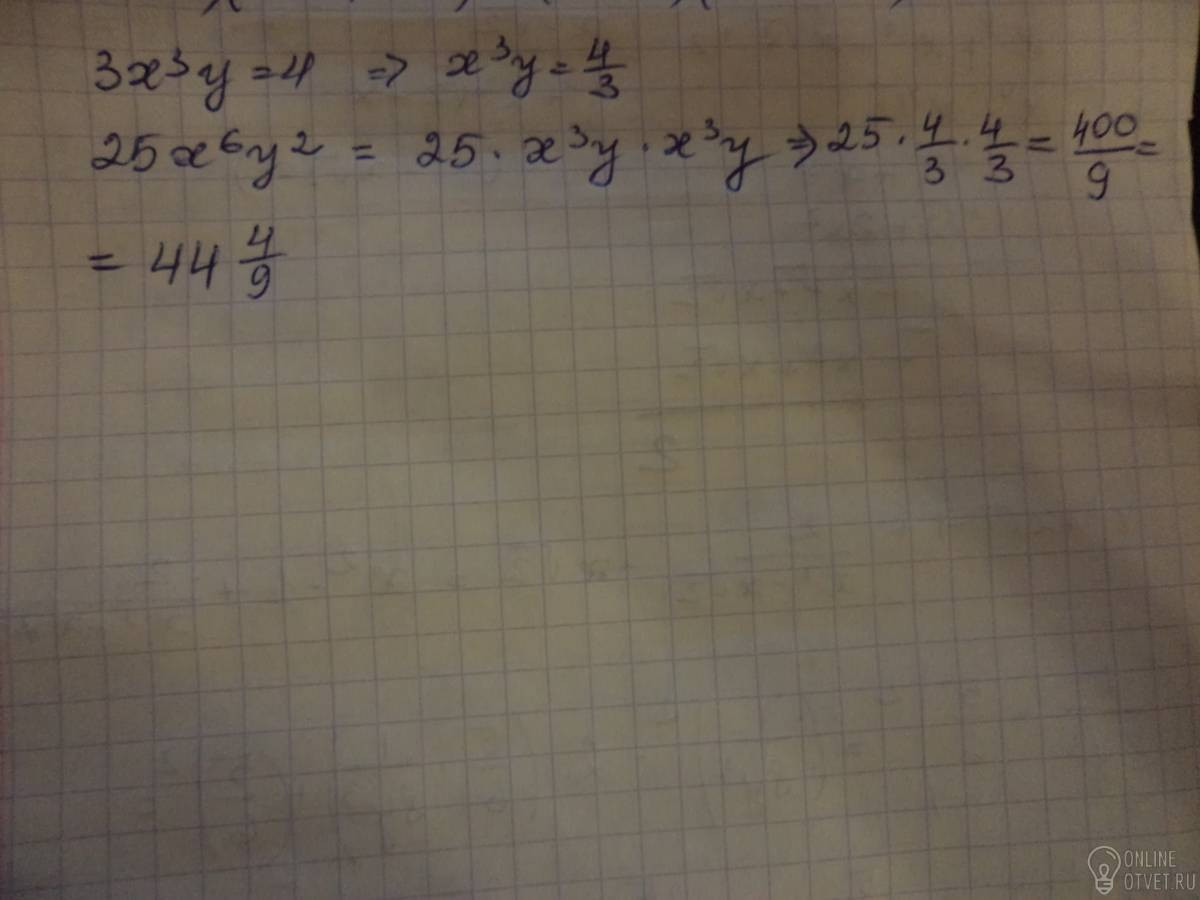 3x³y = 4 => x³y = 4/3
25x⁶y² = 25 · x³y · x³y => 25 · 4/3 · 4/3 = 400/9 =
= 44 4/9
ONLINE
OTVET.RU